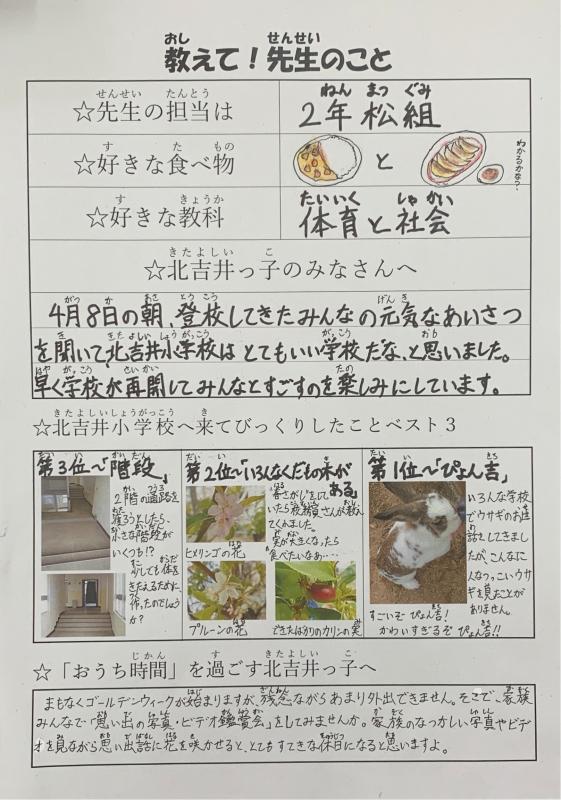 教えて！先生のこと
☆先生の担当は
2年松組
☆好きな食べ物
と
わかるかな？
☆好きな教科
体育と社会
☆北吉井っ子のみなさんへ
4月8日の朝、登校してきたみんなの元気なあいさつ
を聞いて、北吉井小学校はとてもいい学校だな、と思いました。
早く学校が再開してみんなとすごすのを楽しみにしています。
☆北吉井小学校へ来てびっくりしたことベスト３
第3位～「階段」
2階の通路を
渡ろうとしたら、
小さな階段が
いくつも!?
少しでも体を
きたえるために
作ったのでしょう
か？
第2位～「いろんなくだもの木が
ある」
春さがしをして
いたら
さんが教え
てくれました。
実が大きくなったら
食べたいなあ…
ヒメリンゴの花
プルーンの花
できたばかりのカリンの実
第1位～「ぴょん吉」
いろんな学校
でウサギのお世
話をしてきまし
たが、こんなに
人なつっこいウサ
ギを見たことが
ありません。
すごいぞ ぴょん吉！
かわいすぎるぞ ぴょん吉!!
☆「おうち時間」を過ごす北吉井っ子へ
まもなくゴールデンウィークが始まりますが、残念ながらあまり外出できません。そこで、家族
みんなで「思い出の写真・ビデオ鑑賞会」をしてみませんか。家族のなつかしい写真やビデ
オを見ながら思い出話に花を咲かせると、とてもすてきな休日になると思いますよ。